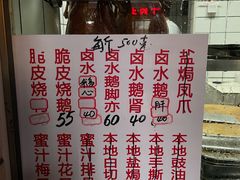 每斤500克
脆皮烧
脆皮烧鹅 55
卤水鹅心 40
卤水鹅脚亦 60
卤水鹅肾 40
卤水鹅肝 40
盐焗凤爪
蜜汁梅
蜜汁花
蜜汁排
本地白切
本地盐焗
本地手撕
本地豉油